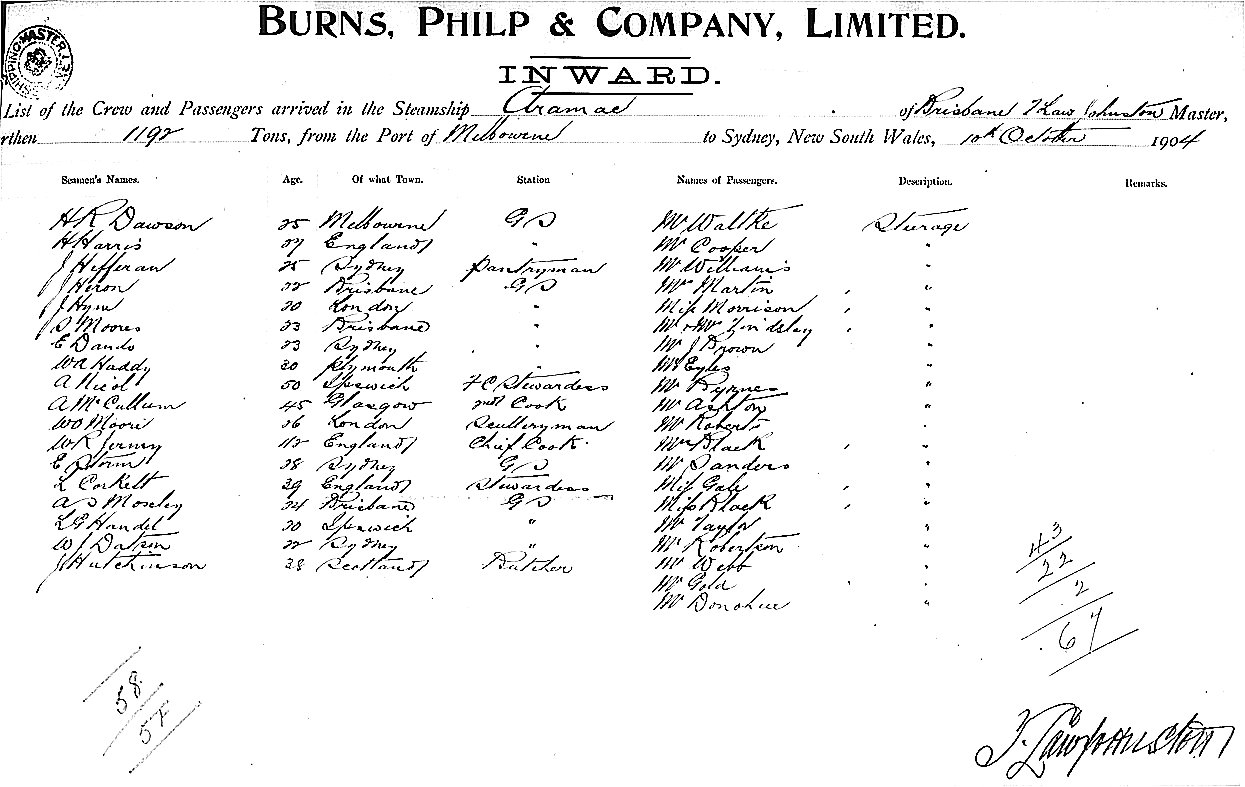 BURNS, PHILP & COMPANY, LIMITED.
SHIPPING MASTER
INWARD.
List of the Crew and Passengers arrived in the Steamship Aramac of Brisbane T Law Johnston Master,
rthen 1192 Tons, from the Port of Melbourne to Sydney, New South Wales, 10th October 1904
Seamen's Names. Age. Of what Town. Station Names of Passengers. Description. Remarks.
H R Dawson 25 Melbourne GS Mr Waltke Sturage
H Harris 27 England " Mr Cooper "
J Hefferan 25 Sydney Pantryman Mr Williams "
J Heron 22 Brisbane GS Mrs Martin "
J Hym 20 London " Miss Morrison "
S Moores 23 Brisbane " Mr & Mrs Lindsley "
E Dando 23 Sydney " Mr J Brown "
W A Haddy 20 Plymouth " Mr Eyles "
A Nicol 50 Ipswich F C Stewardess Mr Byrnes "
A McCullum 45 Glasgow 2nd Cook Mr Ashton "
W D Moore 26 London Sculleryman Mr Roberts "
W R Jermy 42 England Chief Cook Mrs Black "
E Storm 28 Sydney GS Mr Sanders "
L Corkett 39 England Stewardess Miss Gale "
A S Moseley 24 Brisbane GS Miss Black "
L G Handel 20 Ipswich " Mr Taylor "
W J Datson 22 Sydney " Mr Robertson "
J Hutchinson 38 Scotland Butcher Mr Webb "
Mr Gold "
Mr Donohue "
43
22
2
67
58
58
T. Law Johnston